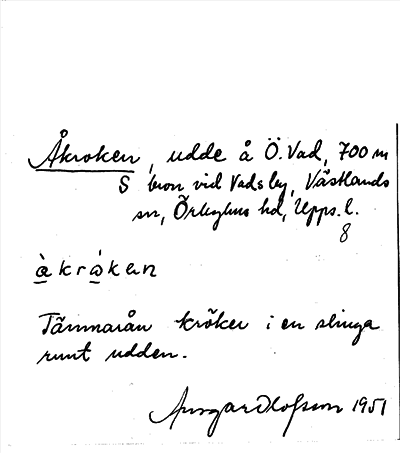 Åkroken, udde å Ö. Vad, 700 m
S bron vid Vadsby, Västlands
sn, Örbyhus hd, Upps. l.
8
å̀kråken
Tämnarån kröker i en slinga
runt udden.
Ansgar Olofsson 1951